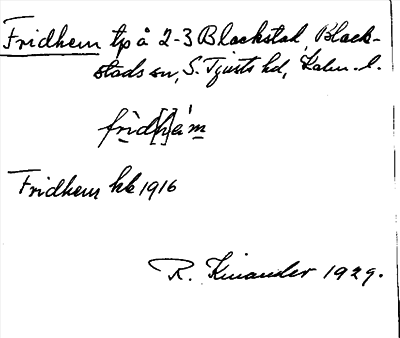 Fridhem tp å 2-3 Blackstad, Black-
stads sn, S. Tjusts hd, Kalm. l.
frìd[h]èm
Fridhem hk 1916
R. Kinander 1929.